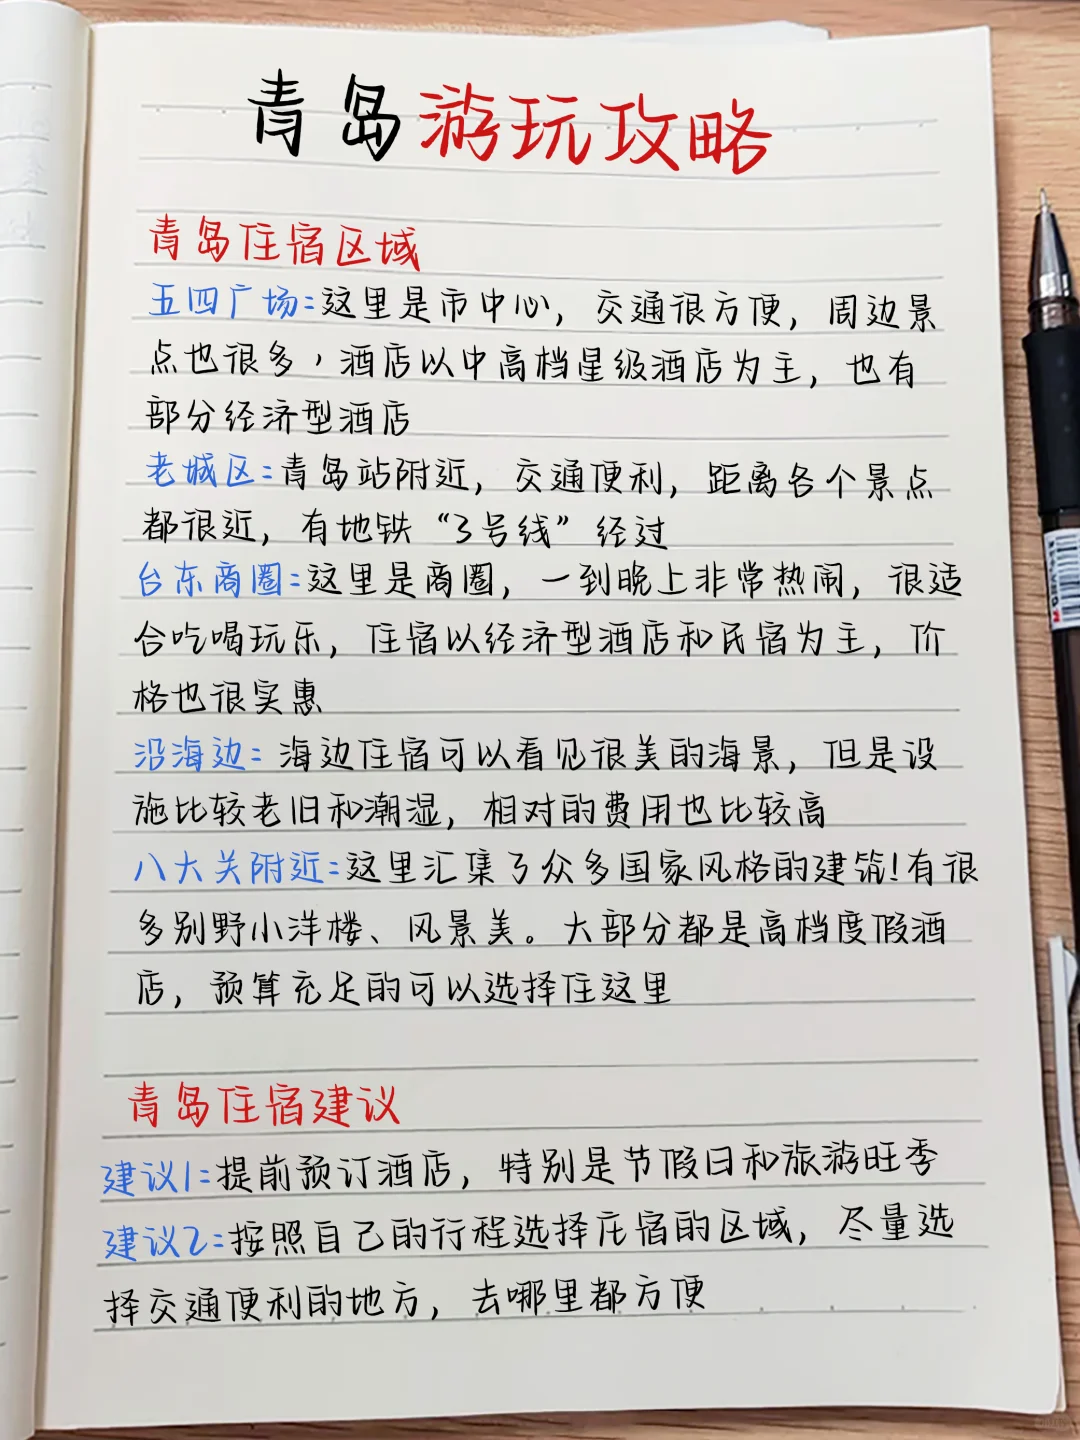 青岛游玩攻略
青岛住宿区域
五四广场:这里是市中心，交通很方便，周边景
点也很多，酒店以中高档星级酒店为主，也有
部分经济型酒店
老城区:青岛站附近，交通便利，距离各个景点
都很近，有地铁“3号线”经过
台东商圈:这里是商圈，一到晚上非常热闹，很适
合吃喝玩乐，住宿以经济型酒店和民宿为主，价
格也很实惠
沿海边:海边住宿可以看见很美的海景，但是设
施比较老旧和潮湿，相对的费用也比较高
八大关附近:这里汇集了众多国家风格的建筑!有很
多别野小洋楼、风景美。大部分都是高档度假酒
店，预算充足的可以选择住这里
青岛住宿建议
建议1:提前预订酒店，特别是节假日和旅游旺季
建议2:按照自己的行程选择住宿的区域，尽量选
择交通便利的地方，去哪里都方便